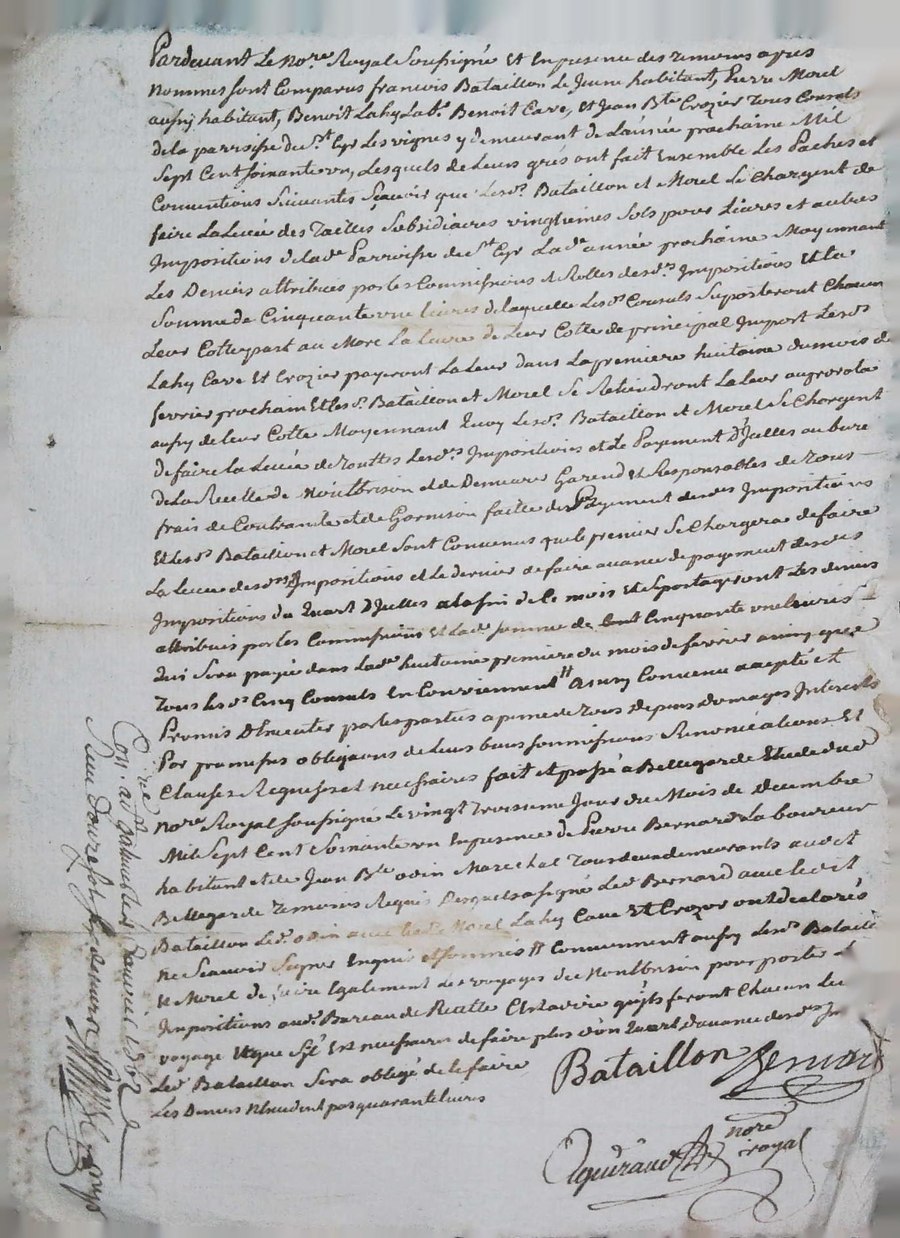 Pardevant Le no.re Royal Soussigné Et En presence des temoins apres
nommes sont Comparus francois Bataillon Le Jeune habitant, Pierre Morel
aussy habitant, Benoit Lahy Lab.r Benoit Cave, et Jean B.te Crozier Tous Consuls
de la parroisse de S.t Cyr Les vignes y demeurant de L'année prochaine Mil
Sept Cent soixante un, Lesquels de Leurs grés ont fait Ensemble Les Paches et
Conventions Suivantes Sçavoir que Lesd. Bataillon et Morel Se Chargent de
faire La Levée des Tailles Subsidiaires vingtiemes Sols pour Livres et autres
Impositions de lad.e Parroisse de S.t Cyr La d.e année prochaine Moyennant
Les Deniers attribués par les Commissions et Rolles desd.s Impositions Et La
Somme de Cinquante une livres de laquelle Lesd.s Consuls Suporteront Chacun
Leur Cottepart au Marc La Livre de Leur Cotte de principal Import Lesd.s
Lahy Cave Et Crozier payeront La Leur dans La premiere huitaine du mois de
fevrier prochain Et Lesd. Bataillon et Morel Se Retiendront La Leur au prorata
aussy de Leur Cotte Moyennant Quoy Lesd. Bataillon et Morel Se Chargent
de faire La Levée de Touttes Lesd.es Impositions et Le Payement D'Icelles au bureau
de La Recette de Montbrison et de Demeurer Garend et Responsables de Tous
frais de Contrainte et de Garnison faitte de Payement desd.es Impositions
Et Lesd. Bataillon et Morel Sont Convenus que Le premier Se Chargera de faire
La Levée desd.es Impositions et Le dernier de faire avance de payement desd.es
Impositions du Quart d'Icelles a la fin de Ce mois Et Se partageront Les deniers
attribués par les Commissions Et Lad.e Somme de Cent Cinquante une Livres
Qui Sera payée dans Lad.e huitaine premiere du mois de fevrier ainsy que
Tous Lesd.s Cinq Consuls En Conviennent // Ainsy Convenu accepté et
Promis D'Executer par les parties a peine de Tous depens Domages Interests
Par promesses obligaons de Leurs biens Soumissions Renonciations Et
Clauses Requises et necessaires fait et passé a Bellegarde Etude dud
no.re Royal Soussigné Le vingt Troisieme Jour du Mois de decembre
Mil Sept Cent Soixante un En presence de Pierre Bernard Laboureur
habitant et de Jean B.te odin Marechal Tous deux demeurants aud.it
Bellegarde Temoins Requis Desquels a signé Led. Bernard avec Led.it
Bataillon Led. odin avec Led. Morel Lahy Cave Et Crozier ont declarés
ne Sçavoir Signer Enquis et Sommés // Conviennent aussy Lesd.s Bataillon
et Morel de faire Egalement des voyages de Montbrison pour porter
Impositions aud. Bureau de Recette C'est a dire qu'ils feront Chacun Le
voyage Et que S'il Est necessaire de faire plus d'un Quart d'avance desd.es
Led. Bataillon Sera obligé de le faire
Les Deniers N'Excedent pas quarante livres
Bataillon Bernard
nore royal
Con. au
Janvier 1762
Reçu Douze sols